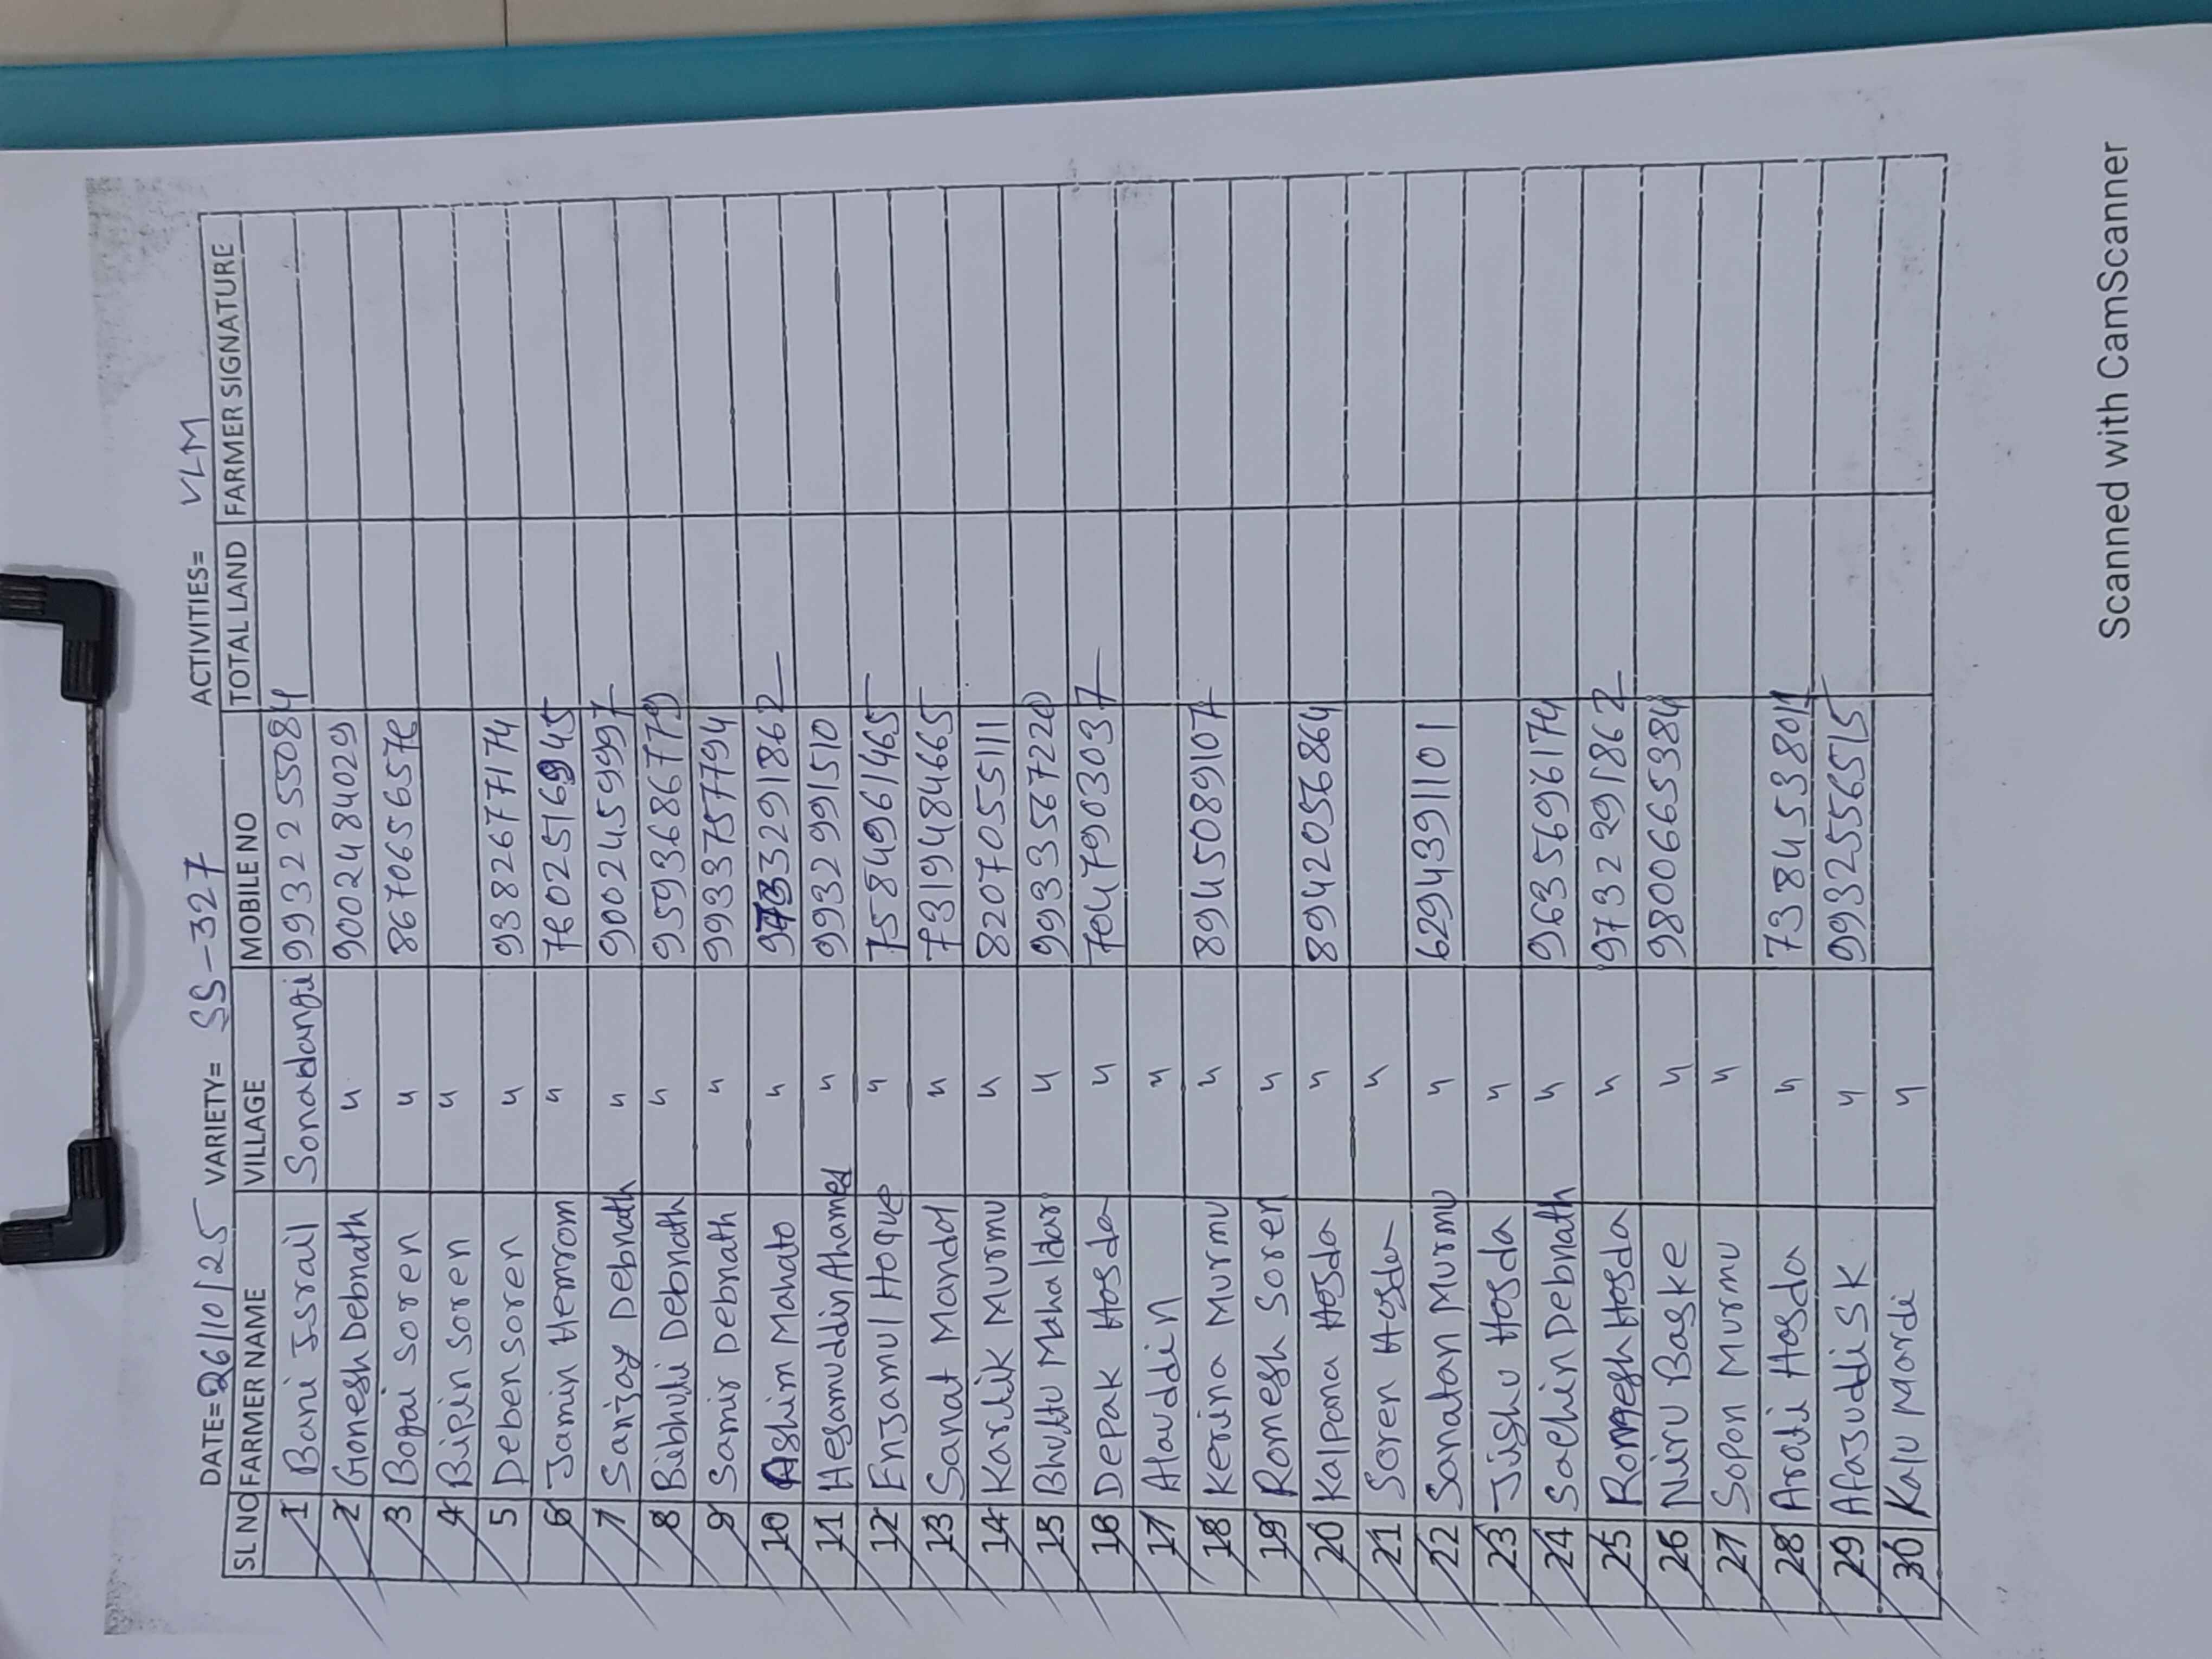 DATE= 26/10/25 VARIETY= SS-327 ACTIVITIES= VLM
SL NO FARMER NAME VILLAGE MOBILE NO TOTAL LAND FARMER SIGNATURE
1 Bani Israil Sonadangi 9932255084
2 Gonesh Debnath " 9002484029
3 Bogai Soren " 8670656576
4 Bipin Soren "
5 Deben Soren " 9382677174
6 Jamin Hemrom " 7602516945
7 Sanjay Debnath " 9002459997
8 Bibhuti Debnath " 9593686779
9 Samir Debnath " 9933757794
10 Ashim Mahato " 9733291862
11 Hesamuddin Ahamed " 9932991510
12 Enjamul Hoque " 7584961465
13 Sanat Mondol " 7319484665
14 Kartik Murmu " 8207055111
15 Bhuttu Mahaldar " 9933567220
16 Depak Hosda " 7047903037
17 Alauddin "
18 Kerina Murmu " 8945089107
19 Romesh Soren "
20 Kalpona Hosda " 8942056864
21 Soren Hosda "
22 Sanatan Murmu " 6294391101
23 Jishu Hosda "
24 Sachin Debnath " 9635696174
25 Romesh Hosda " 9732291862
26 Niru Baske " 9800665384
27 Sopon Murmu "
28 Arati Hosda " 7384538011
29 Afajuddi SK " 9932556515
30 Kalu Mardi "
Scanned with CamScanner